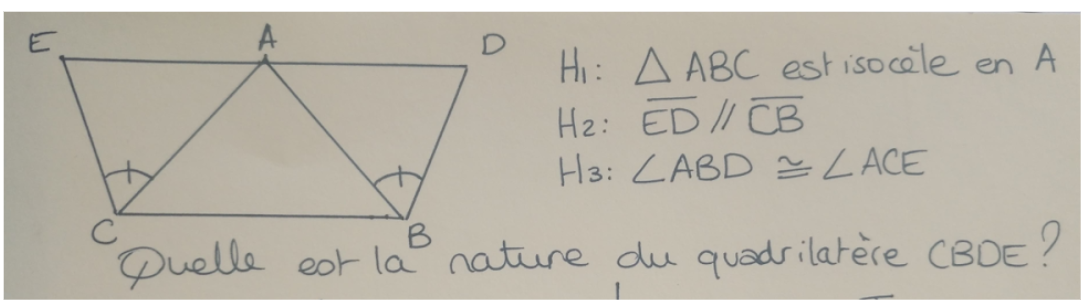 E A D
H1: △ ABC est isocèle en A
H2: E̅D̅ // C̅B̅
H3: ∠ABD ≅ ∠ACE
C B
Quelle est la nature du quadrilatère CBDE?